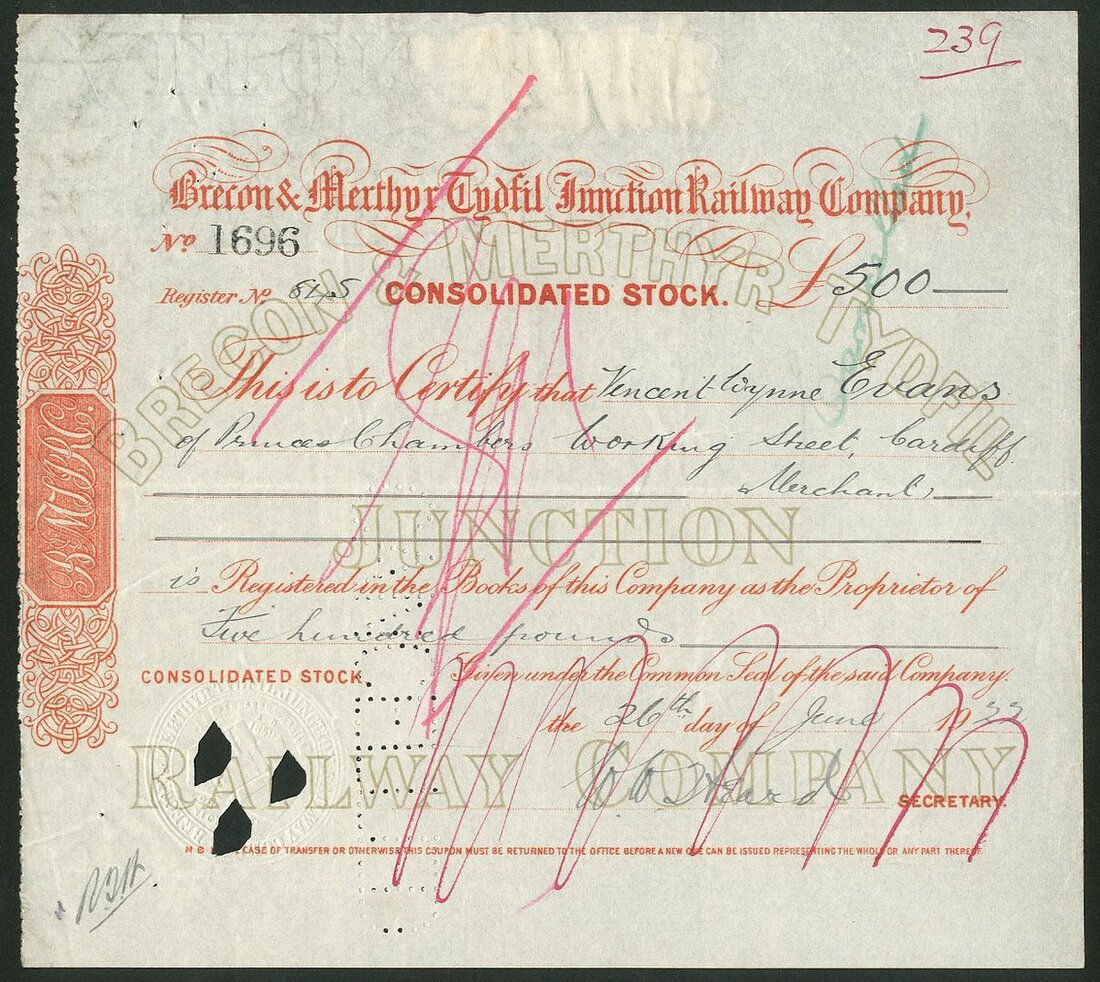 239
Brecon & Merthyr Tydfil Junction Railway Company,
No 1696
£500
Register No 545 CONSOLIDATED STOCK.
BRECON & MERTHYR TYDFIL
This is to Certify that Vincent Wynne Evans
of Princes Chambers Working Street, Cardiff
Merchant,
JUNCTION
is Registered in the Books of this Company as the Proprietor of
Five hundred pounds
CONSOLIDATED STOCK. Given under the Common Seal of the said Company.
the 26th day of June 1922
RAILWAY COMPANY
W W Heard SECRETARY.
N B CASE OF TRANSFER OR OTHERWISE THIS COUPON MUST BE RETURNED TO THE OFFICE BEFORE A NEW ONE CAN BE ISSUED REPRESENTING THE WHOLE OR ANY PART THEREOF